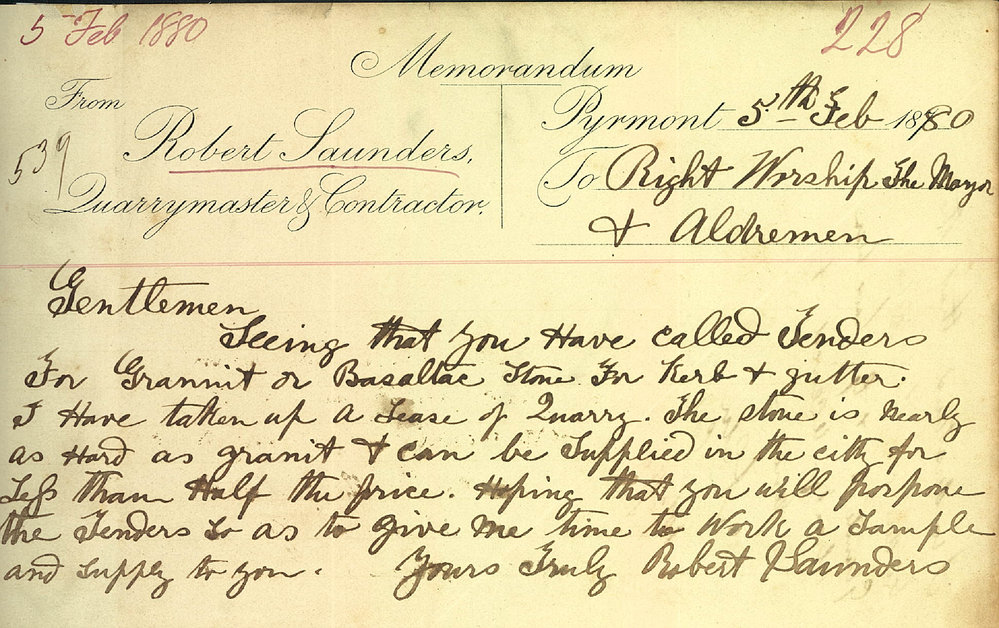 5 Feb 1880
228
Memorandum
From
539
Robert Saunders,
Quarrymaster & Contractor.
Pyrmont 5th Feb 1880
To Right Worship The Mayor
& Aldremen
Gentlemen
Seeing that you Have called Tenders
For Grannit or Basaltac Stone For Kerb & gutter.
I Have taken up a Lease of Quarry. The stone is nearly
as Hard as granit & can be Supplied in the city for
Less than Half the price. Hoping that you will porpone
the Tenders So as to give me time to Work a Sample
and supply to you. Yours Truly Robert Saunders